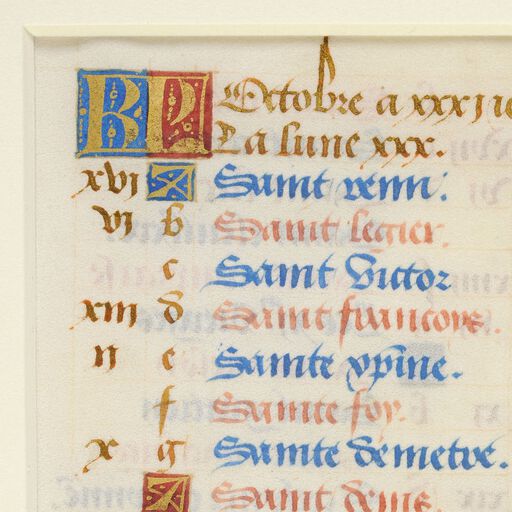 KL Octobre a xxxi io
La lune xxx.
xvj A Saint remi.
vj b Saint legier.
c Saint Victor
xiij d Saint francoys.
ij e Sainte xp̄ine.
f Sainte foy.
x g Sainte demetre.
A Saint denis.